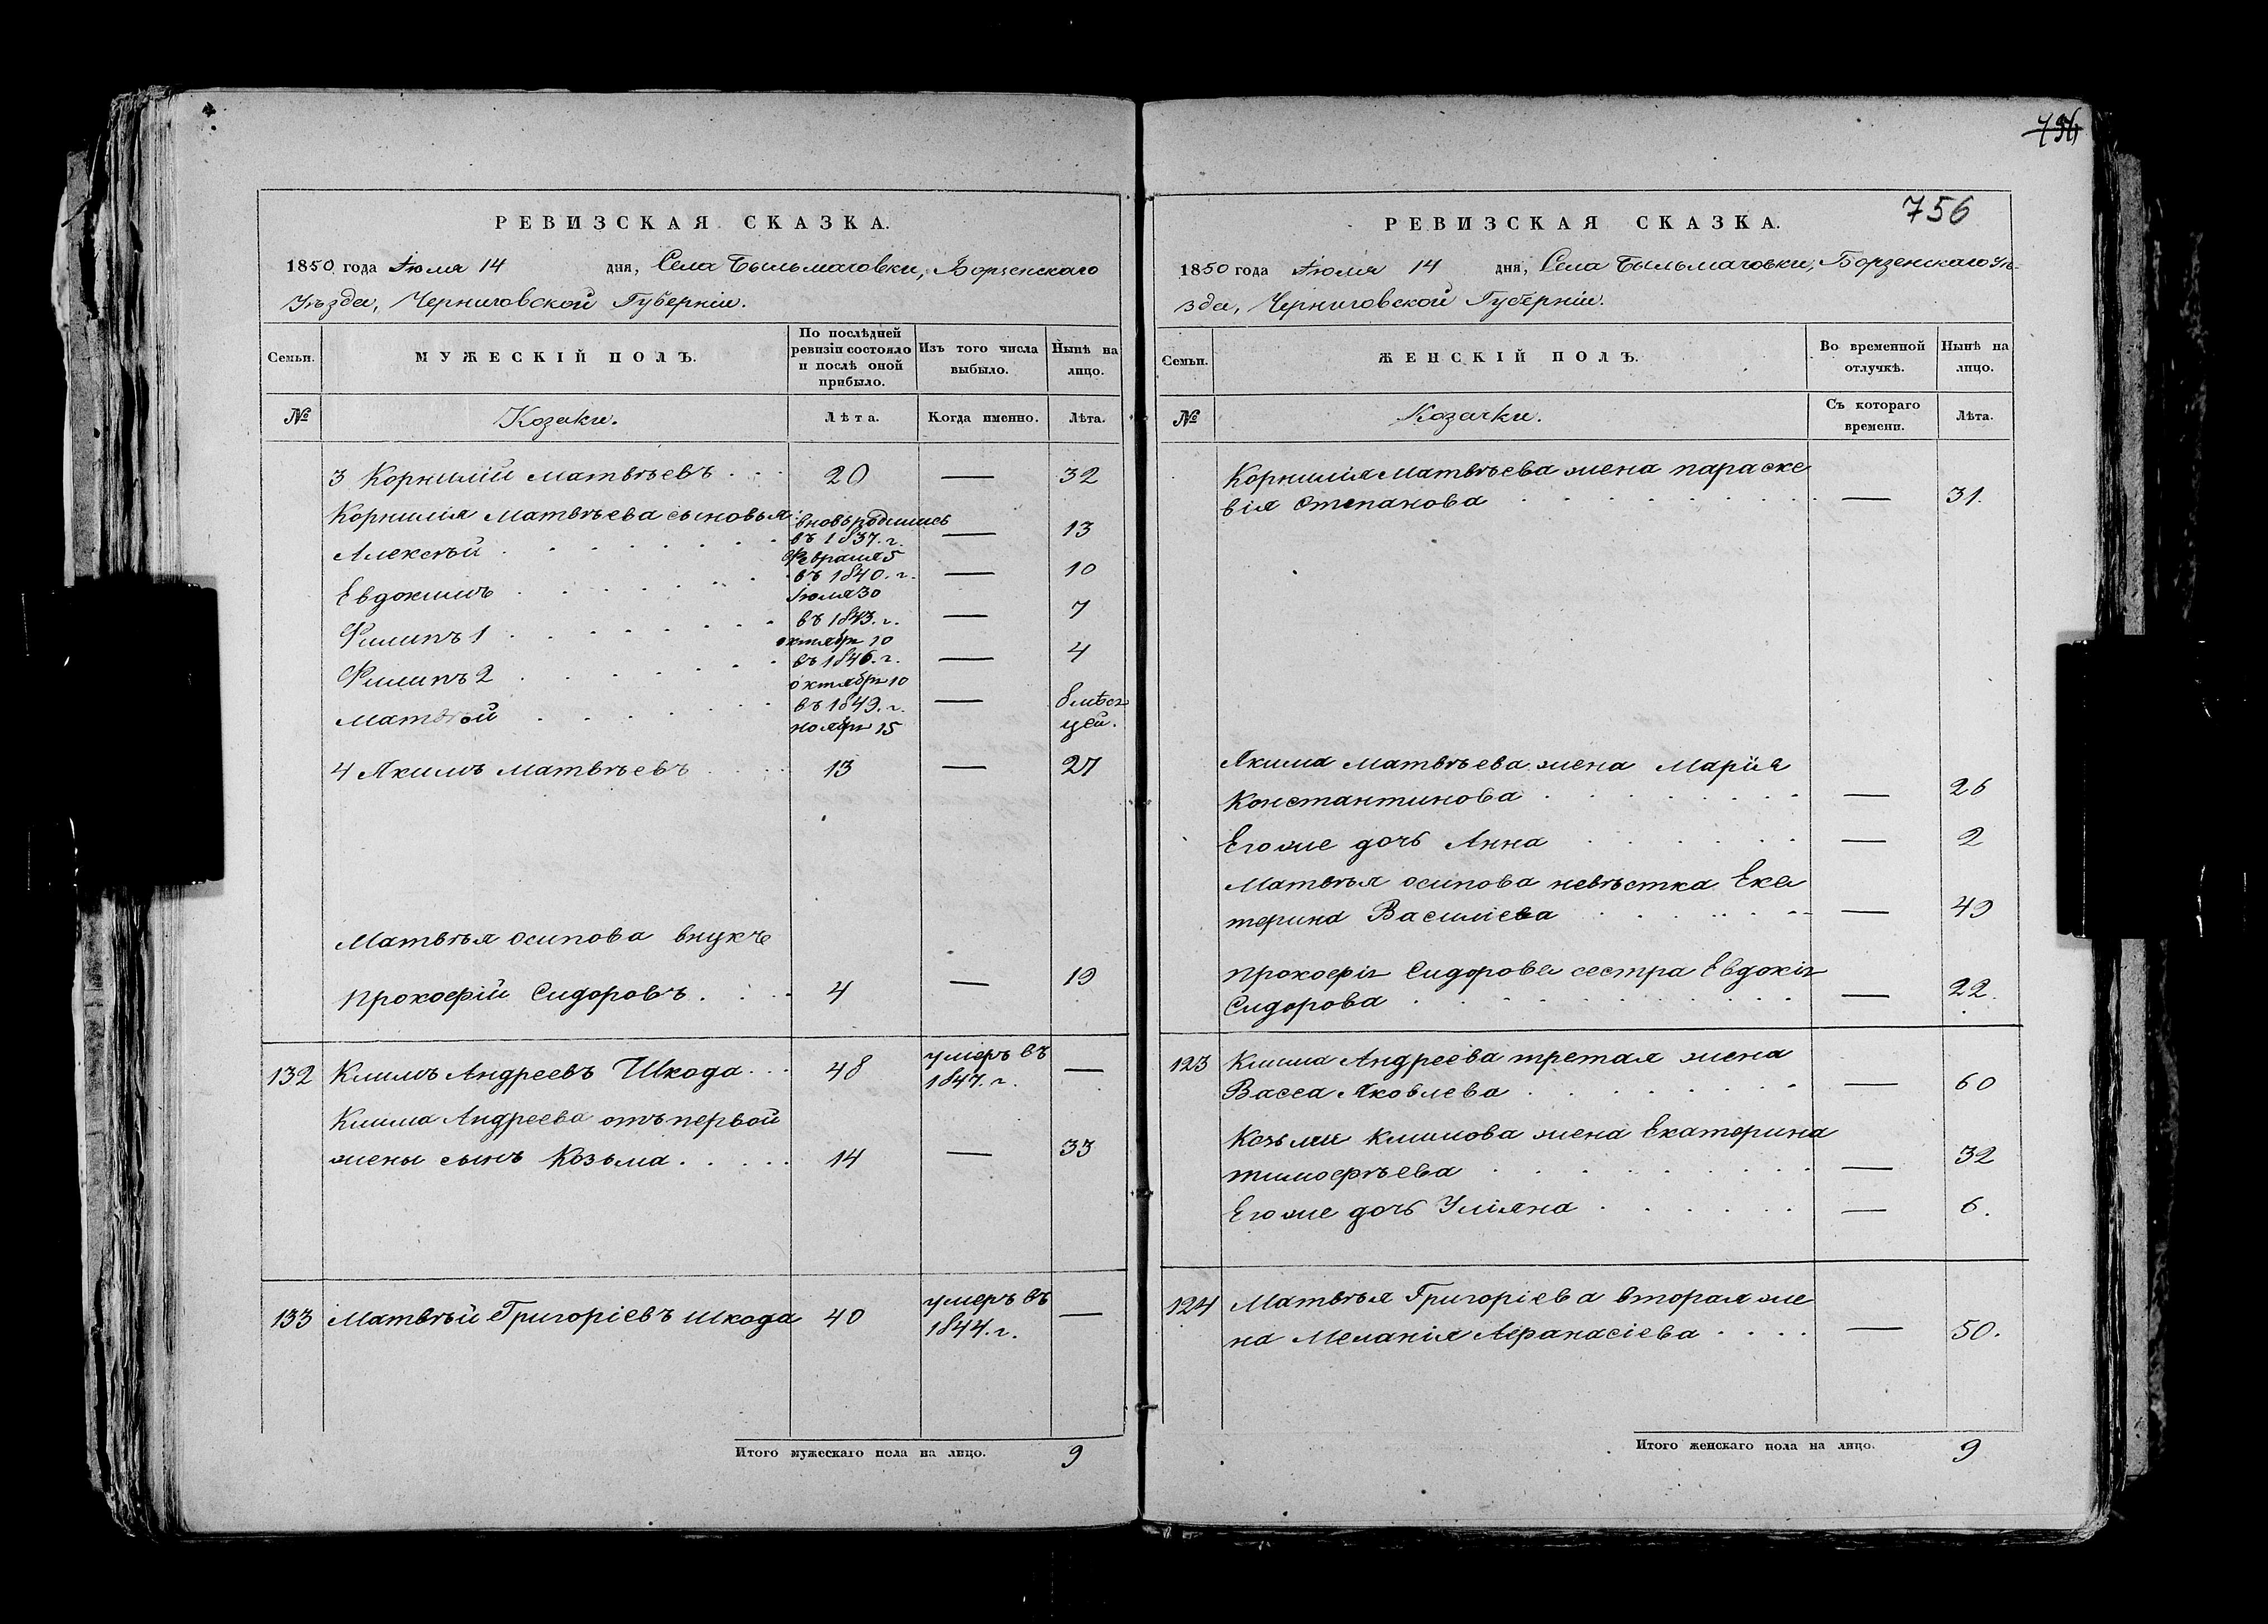 РЕВИЗСКАЯ СКАЗКА.
1850 года Іюля 14 дня, Села Бильмаговки, Борзенскаго
Уѣзда, Черниговской Губерніи.
Семьи. МУЖЕСКІЙ ПОЛЪ. По послѣдней ревизіи состояло и послѣ оной прибыло. Изъ того числа выбыло. Нынѣ на лицо.
№ Козаки. Лѣта. Когда именно. Лѣта.
3 Корнилій Матвѣевъ . . . 20 — 32
Корнилія Матвѣева сыновья: вновь родились
Алексѣй . . . въ 1837. г. Февраля 5 — 13
Евдокимъ . . . въ 1840. г. Іюля 30 — 10
Филипъ 1 . . . въ 1843. г. октября 10 — 7
Филипъ 2 . . . въ 1846. г. октября 10 — 4
Матвѣй . . . въ 1849. г. ноября 15 — 8 мѣся
цей.
4 Якимъ Матвѣевъ . . . 13 — 27
Матвѣя Осипова внукъ
Прокофій Сидоровъ . . . 4 — 19
132 Климъ Андреевъ Шкода . . . 48 умеръ въ 1847. г. —
Клима Андреева отъ первой
жены сынъ Козьма . . . . . 14 — 33
133 Матвѣй Григоріевъ Шкода 40 умеръ въ 1844. г. —
Итого мужескаго пола на лицо. 9
756
РЕВИЗСКАЯ СКАЗКА.
1850 года Іюля 14 дня, Села Бильмаговки, Борзенскаго Уѣ-
зда, Черниговской Губерніи.
Семьи. ЖЕНСКІЙ ПОЛЪ. Во временной отлучкѣ. Нынѣ на лицо.
№ Козачки. Съ котораго времени. Лѣта.
Корнилія Матвѣева жена Параске
вія Степанова . . . — 31.
Якима Матвѣева жена Марія
Константинова . . . — 26
Его же дочь Анна . . . — 2
Матвѣя Осипова невѣстка Ека
терина Василіева . . . — 49
Прокофія Сидорова сестра Евдокія
Сидорова . . . — 22.
123 Клима Андреева третая жена
Васса Яковлева . . . — 60
Козьмы Климова жена Екатерина
Тимофѣева . . . — 32
Его же дочь Уліяна . . . — 6.
124 Матвѣя Григоріева вторая же
на Меланія Афанасіева . . . . — 50.
Итого женскаго пола на лицо. 9